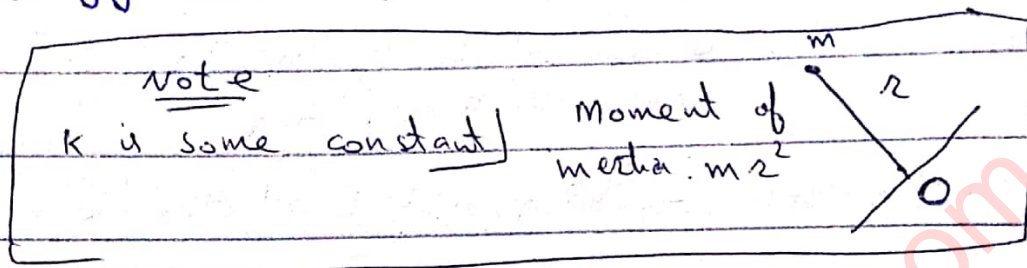 Note
K is some constant
Moment of
inertia : mr²
m
r
O
om